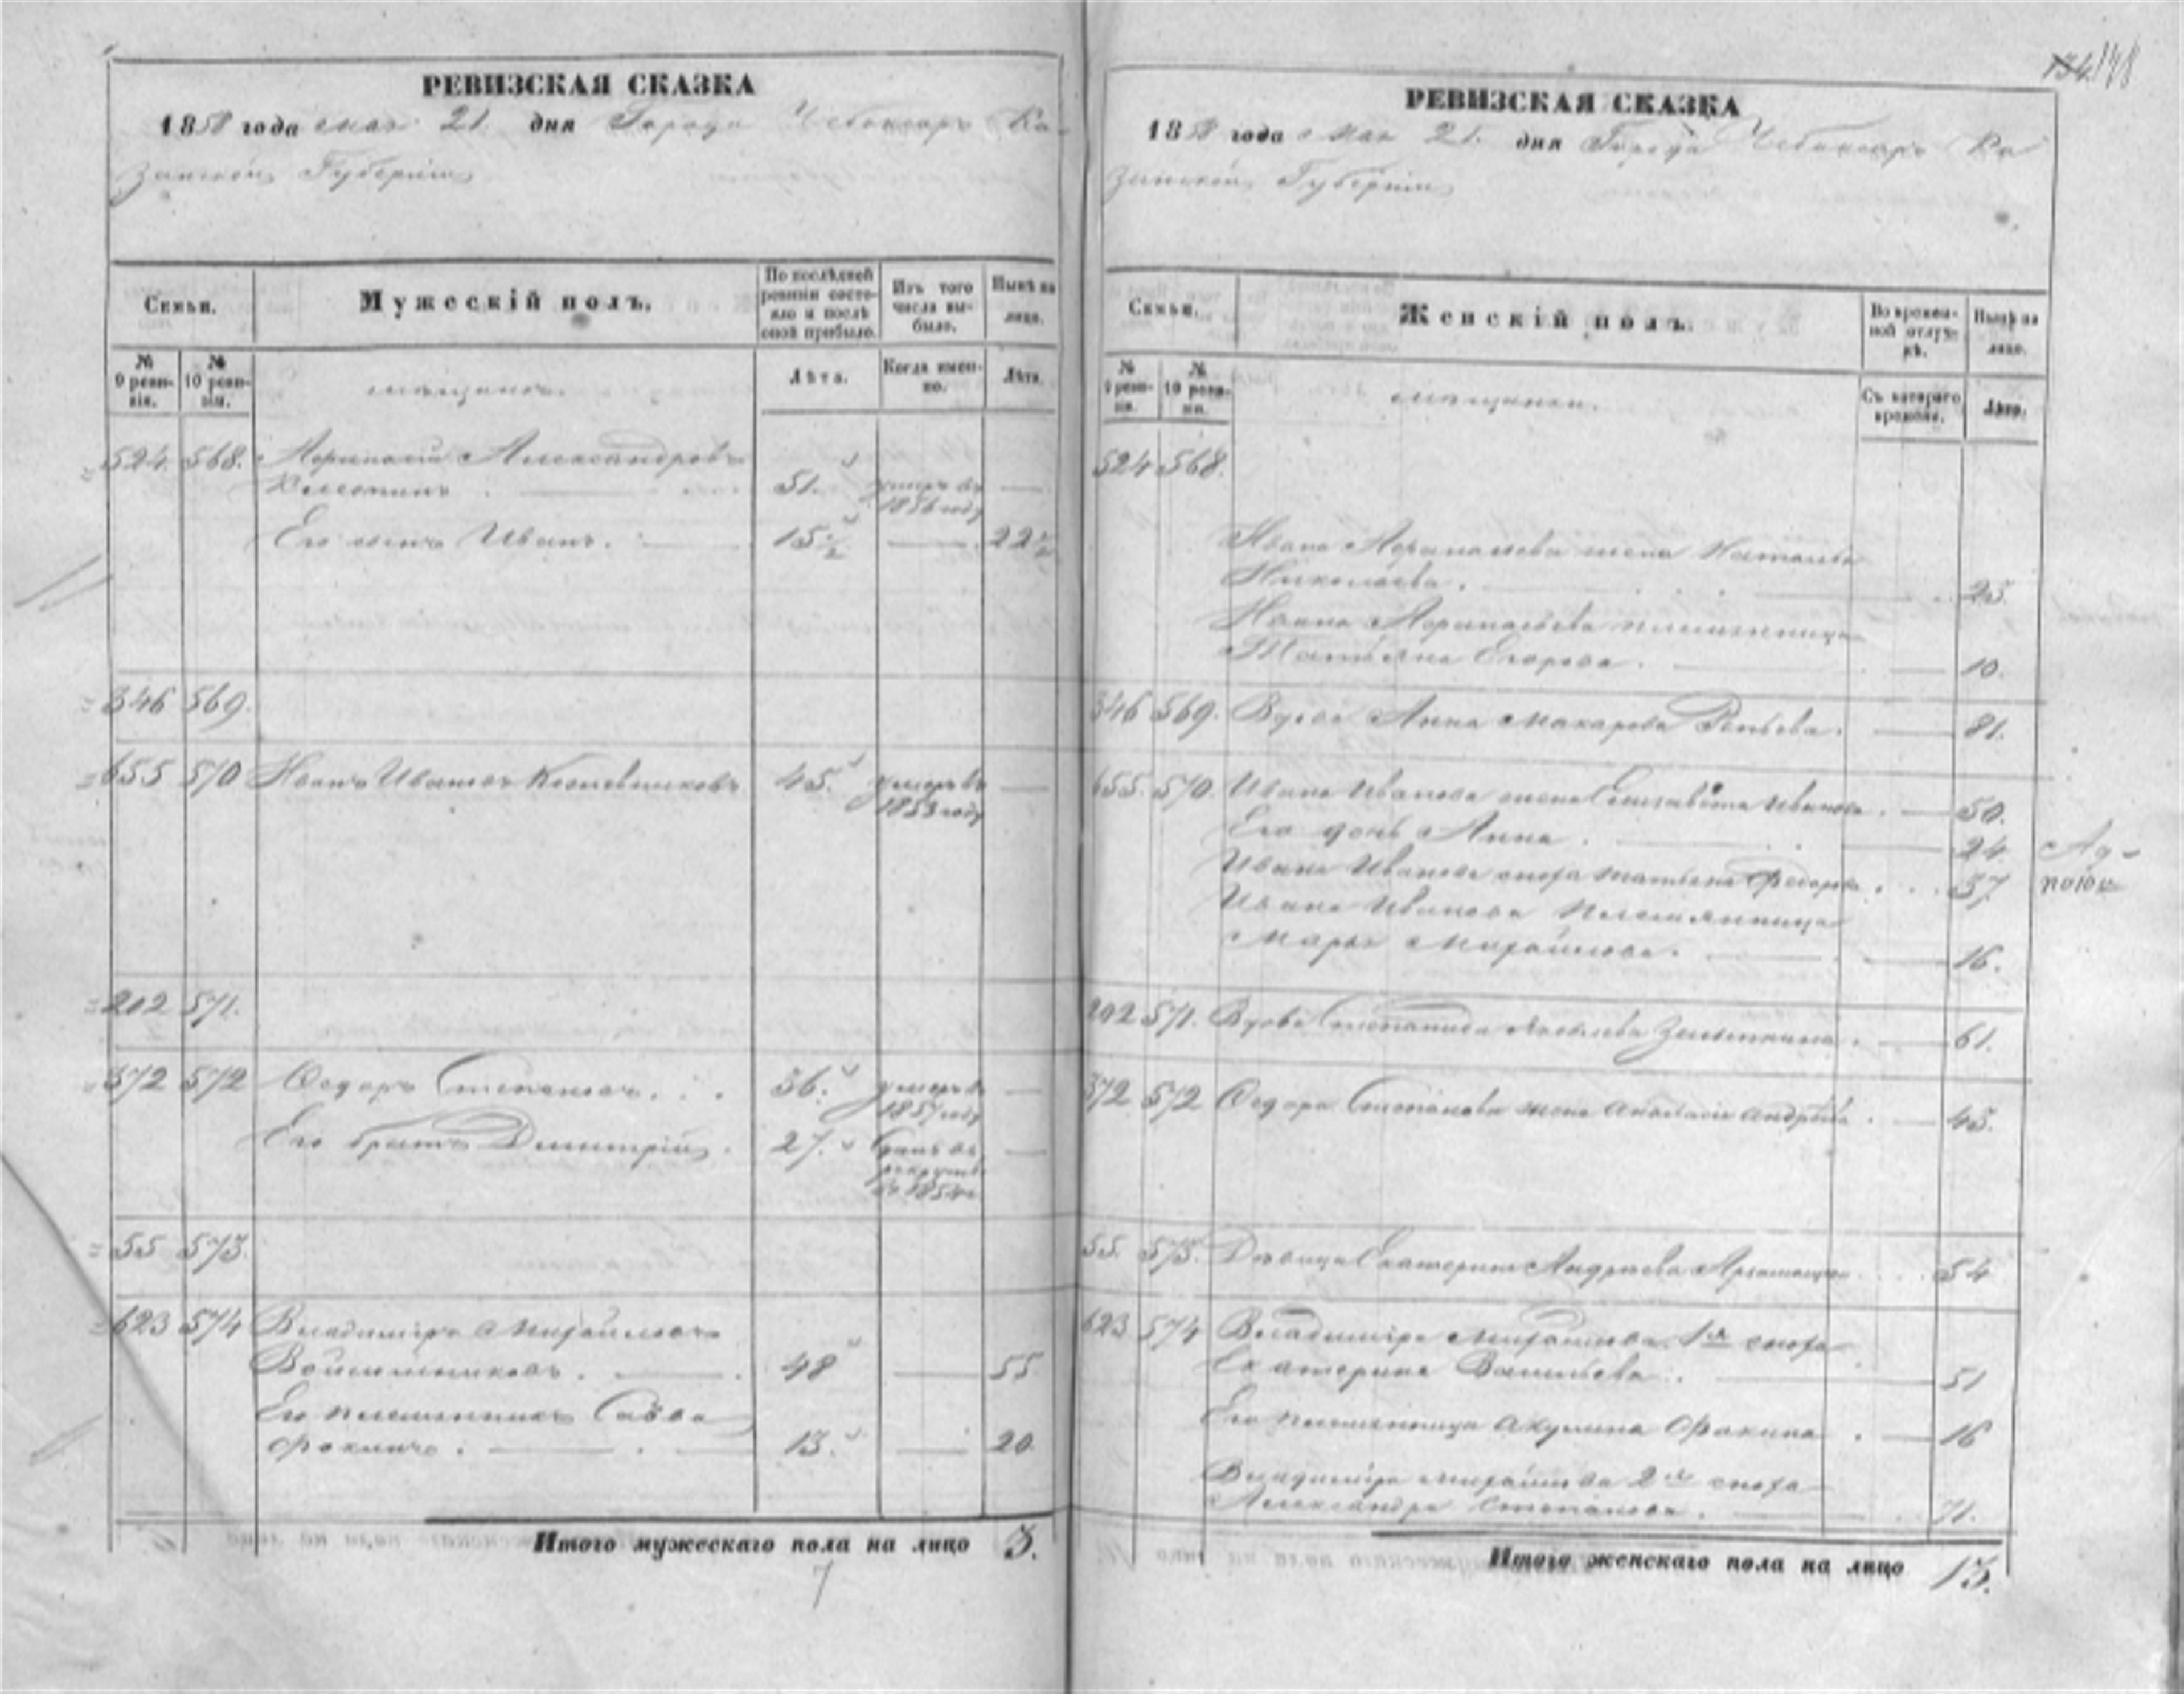 134 148
РЕВИЗСКАЯ СКАЗКА
1858 года мая 21 дня Города Чебоксаръ Ка-
занской Губерніи
Семьи.
Мужескій полъ.
По послѣдней ревизіи состояло и послѣ оной прибыло.
Изъ того числа выбыло.
Нынѣ на лицо.
№ 9 ревизіи.
№ 10 ревизіи.
мѣщане.
Лѣта.
Когда именно.
Лѣта.
524. 568. Александровъ
51. умеръ въ —
1856 году
Его сынъ Иванъ. 15½ — 22½
346 569.
655 570 Иванъ Ивановъ Кожевниковъ 45. умеръ въ —
1853 году
202 571.
372 572 Ѳедоръ Степановъ. 36. умеръ въ —
1857 году
Его братъ Димитрій. 27. Сданъ въ —
рекруты
въ 1854 г.
55 573.
623 574 Владимиръ Михайловъ
Войлошниковъ. 48 — 55
Его племянникъ Савва
Фокинъ. 13. — 20.
Итого мужескаго пола на лицо 3.
7
РЕВИЗСКАЯ СКАЗКА
1858 года мая 21. дня Города Чебоксаръ Ка
занской Губерніи
Семьи.
Женскій полъ.
Во временной отлучкѣ.
Нынѣ на лицо.
№ 9 ревизіи.
№ 10 ревизіи.
мѣщанки.
Съ котораго времени.
Лѣта.
524 568.
Ивана жена Наталья
Николаева. 25.
Ивана племянница
Татьяна Егорова. 10.
346 569. Вдова Анна Макарова 81.
655. 570. Ивана Иванова жена Елизавета Иванова. 50.
Его дочь Анна. 24.
Ивана Иванова сноха Татьяна Федорова. 37.
Ивана Иванова племянница
Марья Михайлова. 16.
202 571. Вдова Степанида Яковлева 61.
372 572 Ѳедора Степанова жена Анастасія Андреева. 43.
55. 573. Дѣвица Екатерина Андреева 54
623 574 Владимира Михайлова 1я сноха
Екатерина Васильева. 51
Его племянница Акулина Фокина. 16
Владимира Михайлова 2я сноха
Александра Степанова. 71.
Итого женскаго пола на лицо 13.